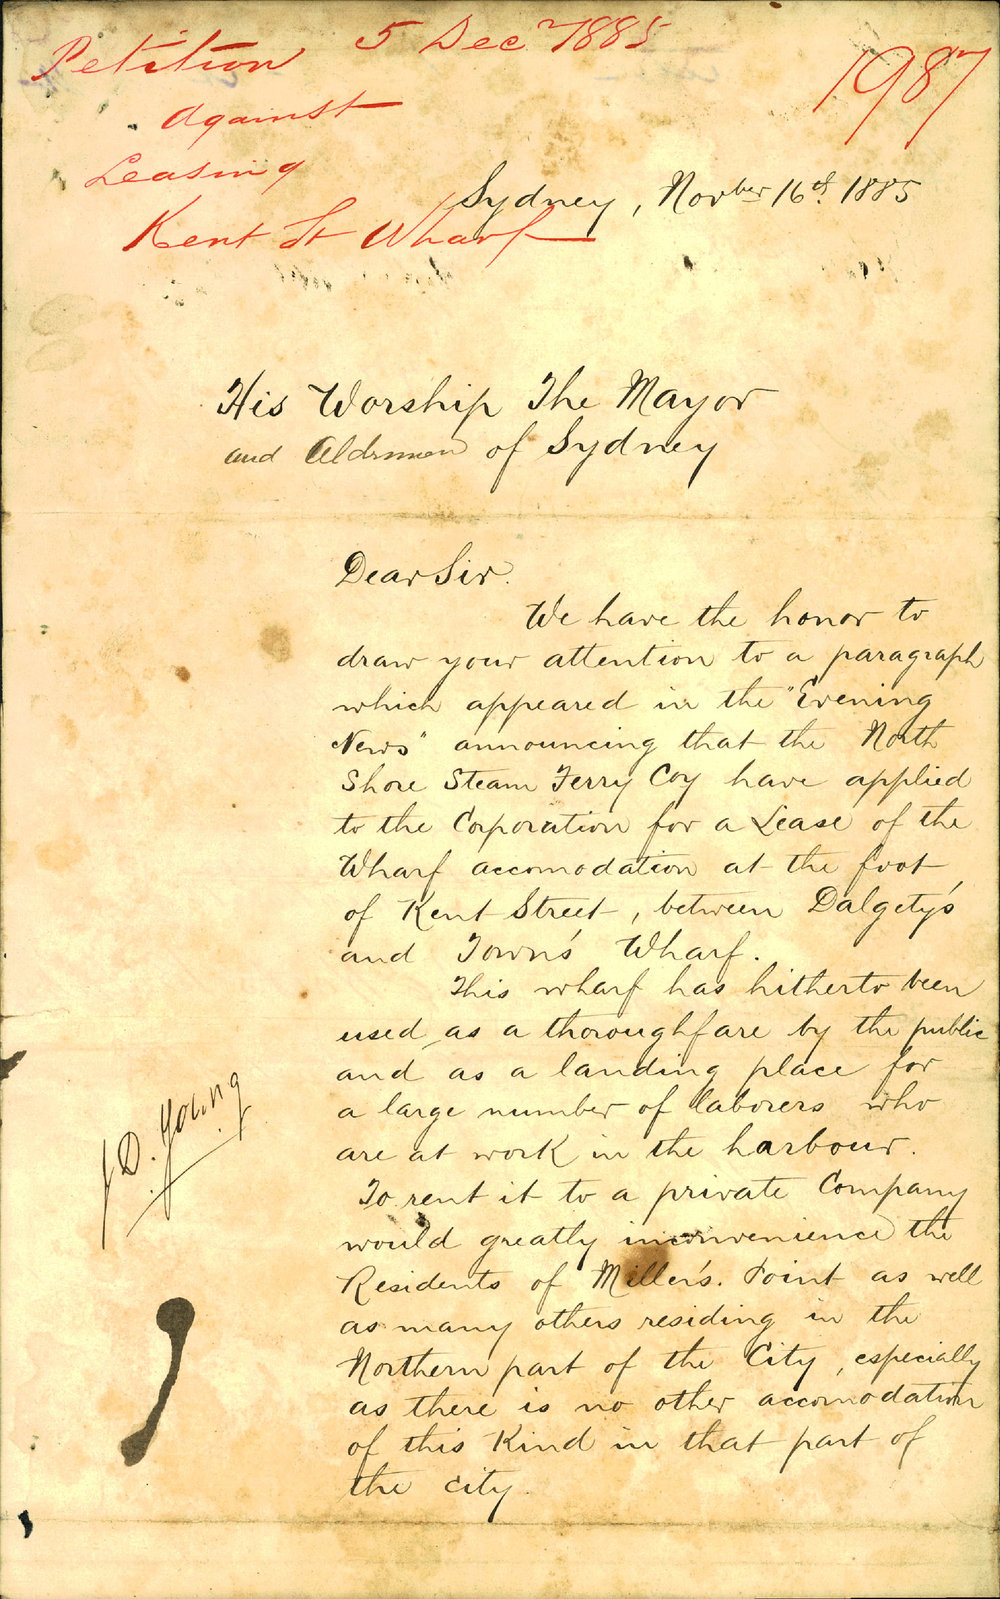 Petition 5 Decr 1885
1987
against
Leasing
Kent St Wharf
Sydney, Novber 16th 1885
His Worship The Mayor
and Aldermen of Sydney
Dear Sir.
We have the honor to
draw your attention to a paragraph
which appeared in the "Evening
News" announcing that the North
Shore Steam Ferry Coy have applied
to the Corporation for a Lease of the
Wharf accomodation at the foot
of Kent Street, between Dalgety's
and Town's Wharf.
This wharf has hitherto been
used as a thoroughfare by the public
and as a landing place for
a large number of laborers who
are at work in the harbour.
To rent it to a private Company
would greatly inconvenience the
Residents of Miller's. Point as well
as many others residing in the
Northern part of the City, especially
as there is no other accomodation
of this Kind in that part of
the city.
J D. Young